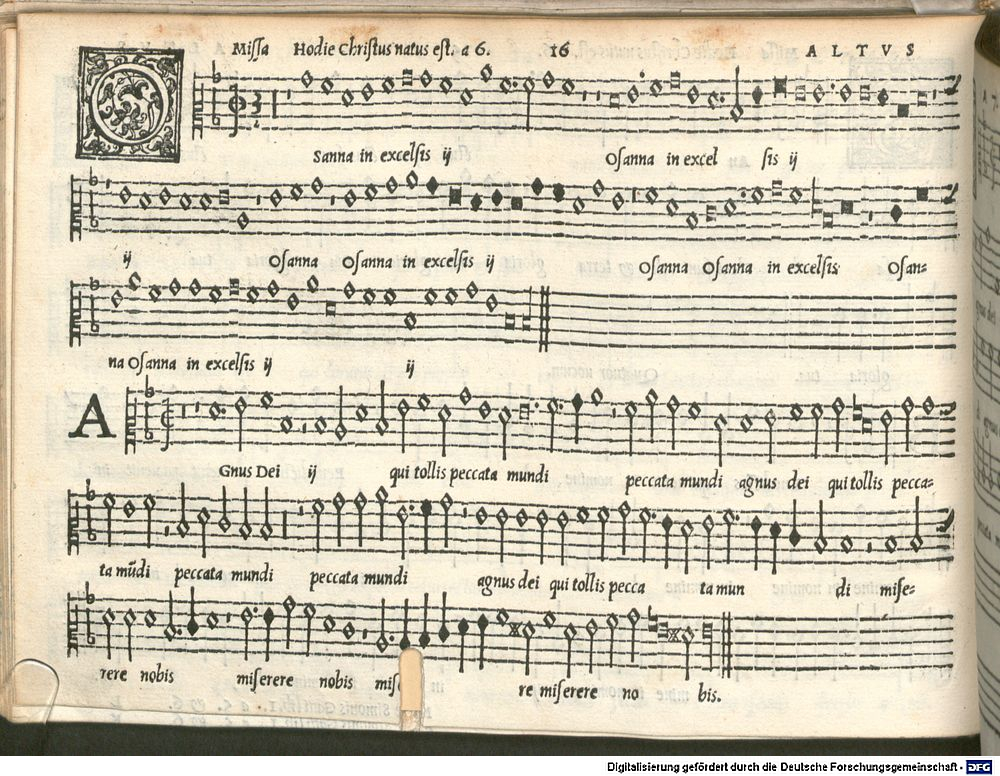 Missa Hodie Christus natus est. a 6. 16 ALTVS
O
sanna in excelsis ij Osanna in excel sis ij
ij Osanna Osanna in excelsis ij Osanna Osanna in excelsis Osan-
na Osanna in excelsis ij ij
A
Gnus Dei ij qui tollis peccata mundi peccata mundi agnus dei qui tollis pecca-
ta mūdi peccata mundi peccata mundi agnus dei qui tollis pecca ta mun di mise-
rere nobis miserere nobis mis re miserere no bis.
Digitalisierung gefördert durch die Deutsche Forschungsgemeinschaft - DFG